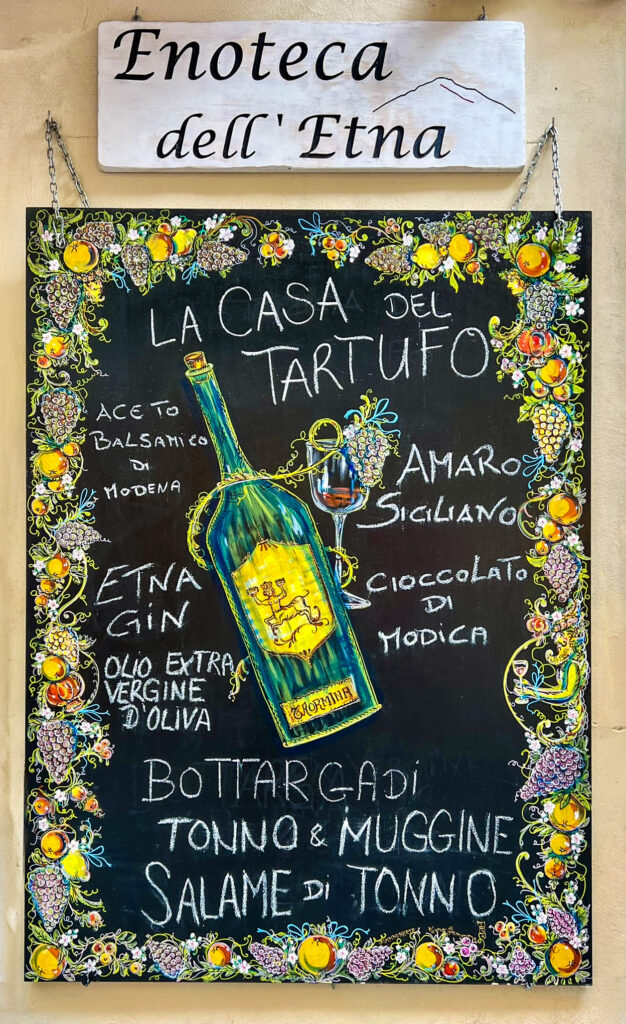 Enoteca
dell' Etna
LA CASA DEL
TARTUFO
ACETO
BALSAMICO
DI
MODENA
AMARO
SICILIANO
ETNA
GIN
CIOCCOLATO
DI
MODICA
OLIO EXTRA
VERGINE
D'OLIVA
TAORMINA
BOTTARGA DI
TONNO & MUGGINE
SALAME DI TONNO